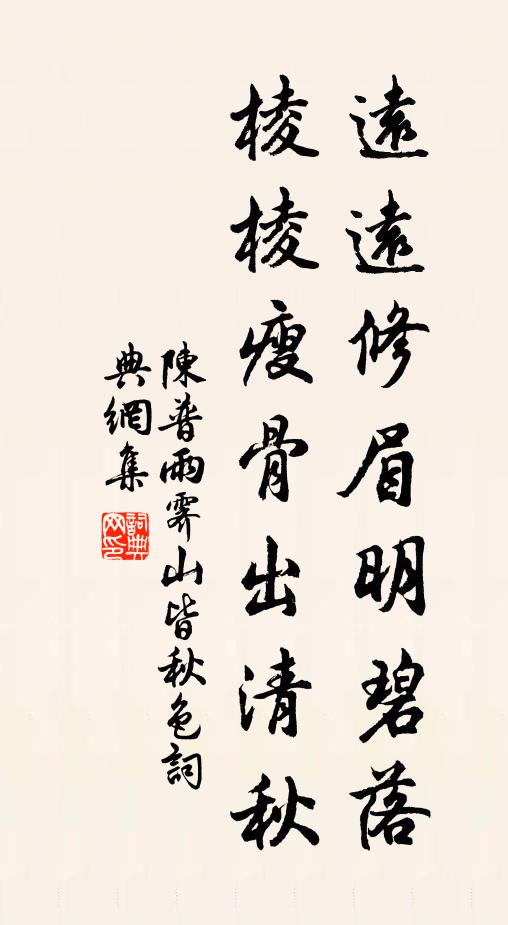 遠遠修眉明碧落
棱棱瘦骨出清秋
陳普雨霽山皆秋色詞
典網集
詞典網印